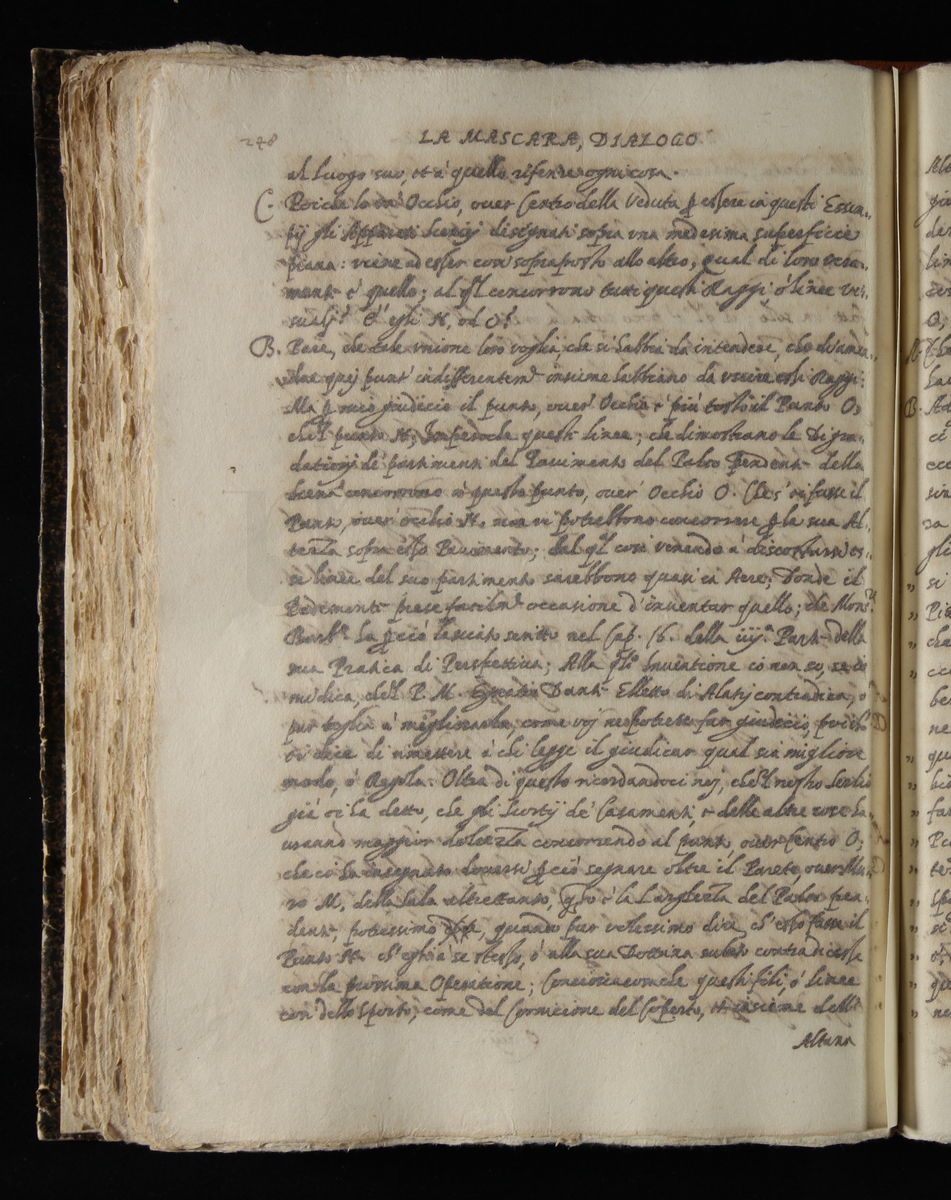 248
LA MASCARA, DIALOGO
al luogo suo, et à quello riferire ogni cosa.
C. Poiche lo Occhio, over Centro della Veduta p essere in questi Essem=
pij gli Apparati Scenicj disegnati sopra una medesima superficie
piana: viene ad esser così sopraposto allo altro, qual di loro vera=
ment è quello; al ql concorrono tutti questi Raggi ò linee vi=
sualj? È egli H, od O?
B. Pare, che tale unione loro voglia, che si habbia da intendere, che di amen=
due quej punti indifferentem insieme habbiano da uscire essi Raggi.
Ma p mio giudicio il punto, over Occhio è più tosto il Punto O,
che'l punto H; Impercioche queste linee; che dimostrano le Digra=
dationj de' partimenti del Pavimento del Palco pendent della
Scena concorrono à questo punto, over Occhio O. Che s' vi fusse il
Punto, over occhio H. non vi potrebbono concorrere p la sua Al=
tezza sopra esso Pavimento; dal ql così venendo à discostarsi es=
se linee del suo partimento sarebbono quasi in Aere; Donde il
Pedemont prese facilm occasione d'inventar quello; che Mons.
Barb. ha p ciò lasciato scritto nel Cap. 16. della iiij. Part della
sua Pratica di Perspettiva; Alla ql Inventione io non so, se io
mi dica, che'l P. M. Egnatio Danti Eletto di Alatj contradica, ò
pur toglia à migliorarla, come voj ne potrete far giudicio,
ei dice di rimettere à chi legge il giudicar qual sia migliore
modo, ò Regola. Oltra di questo ricordandoci noj, che'l nostro Serlio
già ci ha detto, che gli Scortij de' Casamenti, e delle altre cose ha=
veranno maggior dolcezza concorrendo al punto over Centro O;
che ci ha insegnato doversi p ciò segnare oltre il Parete over Mu=
ro M, della Sala altrettanto, qto è la Larghezza del Palco pen=
dent, potessimo quando pur volessimo dire ch'esso fusse il
Punto H. ch'egli à se stesso, ò alla sua Dottrina subito contradicesse
con la prossima Operatione; Conciosiacosache questi fili, ò linee
così dello Sporto, come del Cornicione del Coperto, et insieme dell'
Altezza